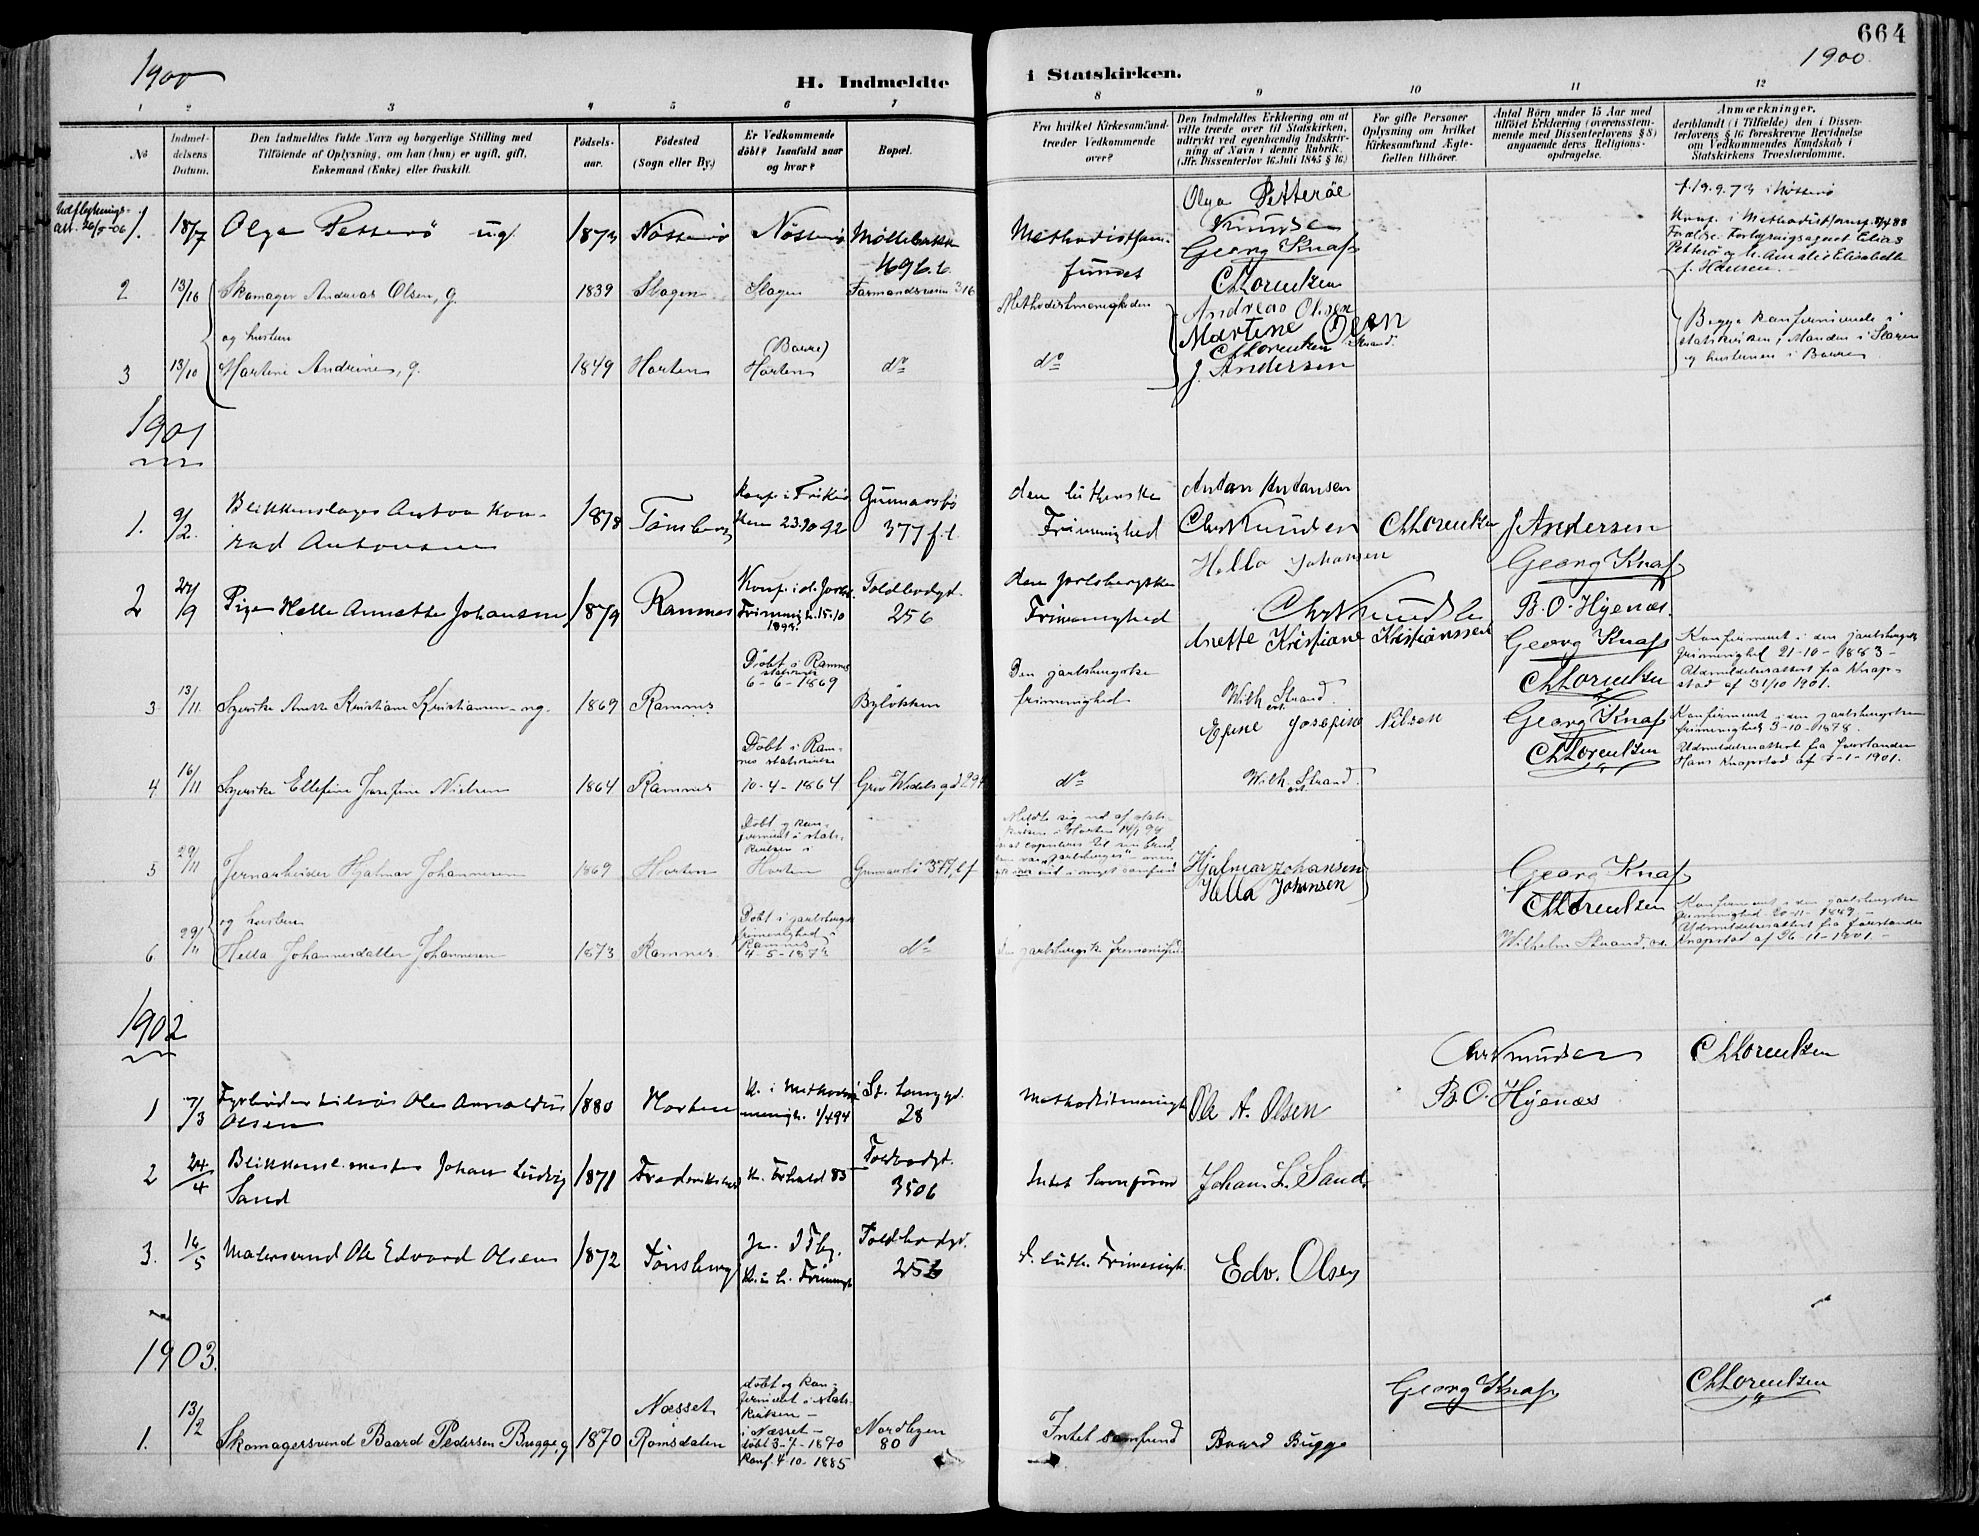 664
1900
1900
H. Indmeldte i Statskirken.
1 2 3 4 5 6 7 8 9 10 11 12
No
Indmel-
delsens
Datum.
Den Indmeldtes fulde Navn og borgerlige Stilling med
Tilföiende af Oplysning, om han (hun) er ugift, gift,
Enkemand (Enke) eller fraskilt.
Födsels-
aar.
Födested
(Sogn eller By.)
Er Vedkommende
döbt? Isaafald naar
og hvor?
Bopæl.
Fra hvilket Kirkesamfund
træder Vedkommende
over?
Den Indmeldtes Erklæring om at
ville træde over til Statskirken,
udtrykt ved egenhændig Indskriv-
ning af Navn i denne Rubrik.
(Jfr. Dissenterlov 16 Juli 1845 § 16)
For gifte Personer
Oplysning om hvilket
Kirkesamfund Ægte-
fællen tilhører.
Antal Börn under 15 Aar med
tilföiet Erklæring (overensstem-
mende med Dissenterlovens § 8)
angaaende deres Religions-
opdragelse.
Anmærkninger,
deriblandt (i Tilfælde) den i Dissen-
terlovens § 16 foreskrevne Bevidnelse
om Vedkommendes Kundskab i
Statskirkens Troeslærdomme.
Udflytnings-
att. 26/5-06
1. 18/7 Olga Petterö ug. 1873 Nötterö Nötterö Möllebakken
496 b.
Methodistsam-
fundet
Olga Petteröe
Knudsen
Georg Knaf
Chr Lorentzen
f. 19.9.73 i Nötterö
Konf. i Methodistsamf.
Petterö og h. Amalie Elisabeth
f. Hansen.
2 13/10 Skomager Andreas Olsen, g. 1839 Slagen Slagen Farmandsveien 316
Methodistmenigheden
Andreas Olsen
Martine Olsen
Chr Lorentzen
J. Andersen
Begge konfirmerede i
statskirken, Manden i Slagen
og hustruen i Borre
og hustru
3 13/10 Martine Andrine, g. 1849 Horten (Borre)
Horten do do
1901
1. 9/2. Blikkenslager Anton Kon-
rad Antonsen 1878 Tönsberg Konf. i Frikir
ken 23.10 92 Gunnarsbö
377 f. t.
den lutherske
Frimenighed
Anton Antonsen
Chr Knudsen Chr Lorentzen J Andersen
2 24/9 Pige Helle Annette Johansen 1879 Ramnes Konf. i d. Jarlsb.
Frimenigh. 15.10
1893. Toldbodgt.
256
den jarlsbergske
Frimenighed
Hella Johansen
Chr Knudsen
Georg Knaf
B. O. Hyenæs.
3 13/11 Syerske Anette Kristiane Kristiansen - ug. 1869 Ramnes Döbt i Ramnes
statskirke
6-6-1869 Bylökken
Den jarlsbergske
frimenighed
Anette Kristiane Kristianssen
Wilh. Strand.
Georg Knaf
Chr Lorentzen
Konfirmeret i den jarlsbergske
frimenighed 21-10-1883-
Udmeldelsesattest fra Knap-
stad af 31/10 1901.
4 16/11 Syerske Ellefine Josefine Nielsen 1864 Ramnes Döbt i Ram-
nes statskirke
10-4-1864 Grev Wedels gd 294
do
Efine Josefine Nilsen
Wilh. Strand.
Georg Knaf
Chr Lorentzen
Konfirmeret i den jarlsbergske
frimenighed 3-10-1878.
Udmeldelsesattest fra forstander
Hans Knapstad af 7-1-1901.
5 29/11 Jernarbeider Hjalmar Johannesen 1869 Horten Döbt og kon-
firmeret i stats-
kirken i
Horten Gunnarsbö 377, l f
Meldte sig ud af stats-
kirken i Horten 14/1 99
Hjalmar Johansen
Hella Johansen
Georg Knaf
Chr Lorentzen
Wilhelm Strand,
og hustru
6 29/11 Hella Johannesdatter Johannesen 1873 Ramnes Döbt i jarlsbergske
frimenighed i
Ramnes
4-5-1873 do
Den jarlsbergske frimenighed
Konfirmeret i den jarlsbergske
frimenighed 20-11-1889-
Udmeldelsesattest fra forstander
Knapstad af 26-11-1901.-
1902
Chr Knudsen Chr Lorentzen
B. O. Hyenæs
1 7/3 Fyrböder Ole Arnoldus
Olsen 1880 Horten K. i Methodist
menigh. 1/4 94 St. Langgt.
28
Methodistmenigh.
Ole A. Olsen
2 24/4 Blikkensl.mester Johan Ludvig
Sand 1871 Frederikshald K. Frhald 85 Toldbodgt.
350 b
Intet Samfund
Johan L. Sand.
3. 16/5 Malersvend Ole Edvard Olsen 1872 Tönsberg Ja. I Tbg.
K. i L. Frimenigh. Toldbodgt.
256
d. luth. Frimenigh.
Edv. Olsen
1903.
Georg Knaf Chr Lorentzen
1. 13/2 Skomagersvend Baard Pedersen Bugge, g 1870 Næsset
Romsdalen döbt og kon-
firmeret i stats-
kirken -
i Næsset -
döbt 3-7-1870
Konf. 4-10-1885 Nordbyen
80
Intet samfund
Baard Bugge